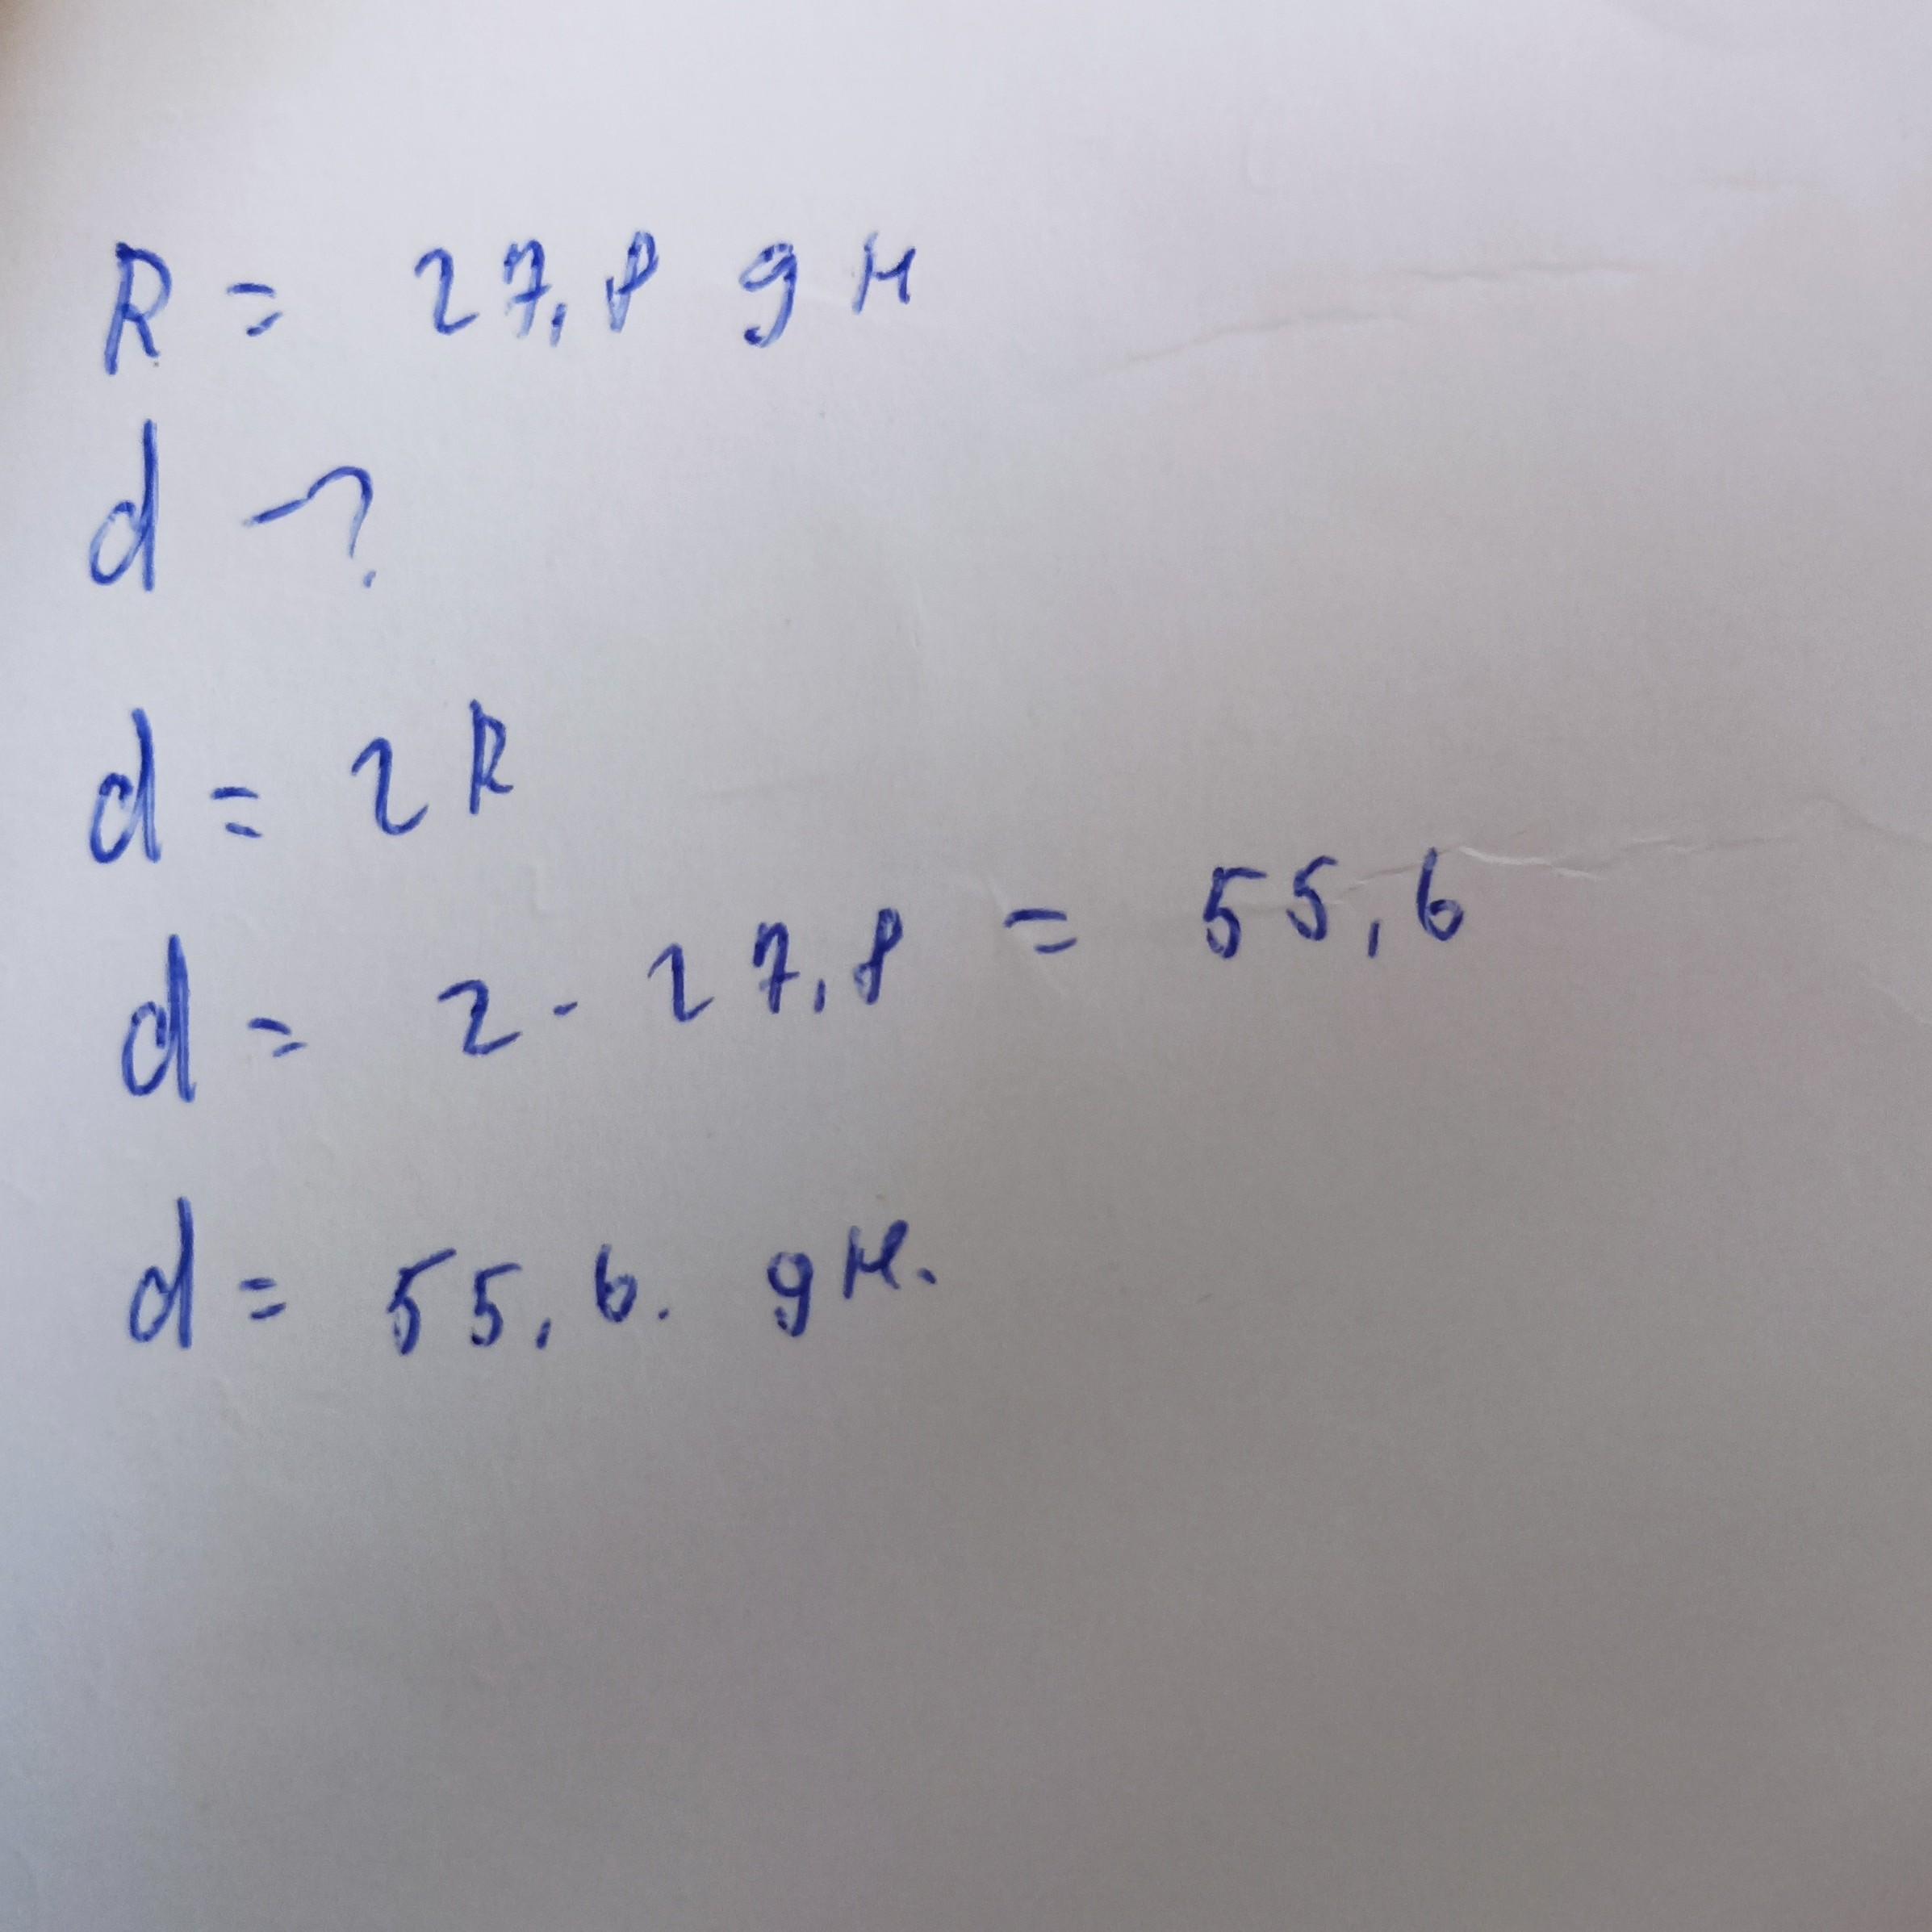 R = 27,8 дм
d - ?
d = 2R
d = 2 · 27,8 = 55,6
d = 55,6. дм.